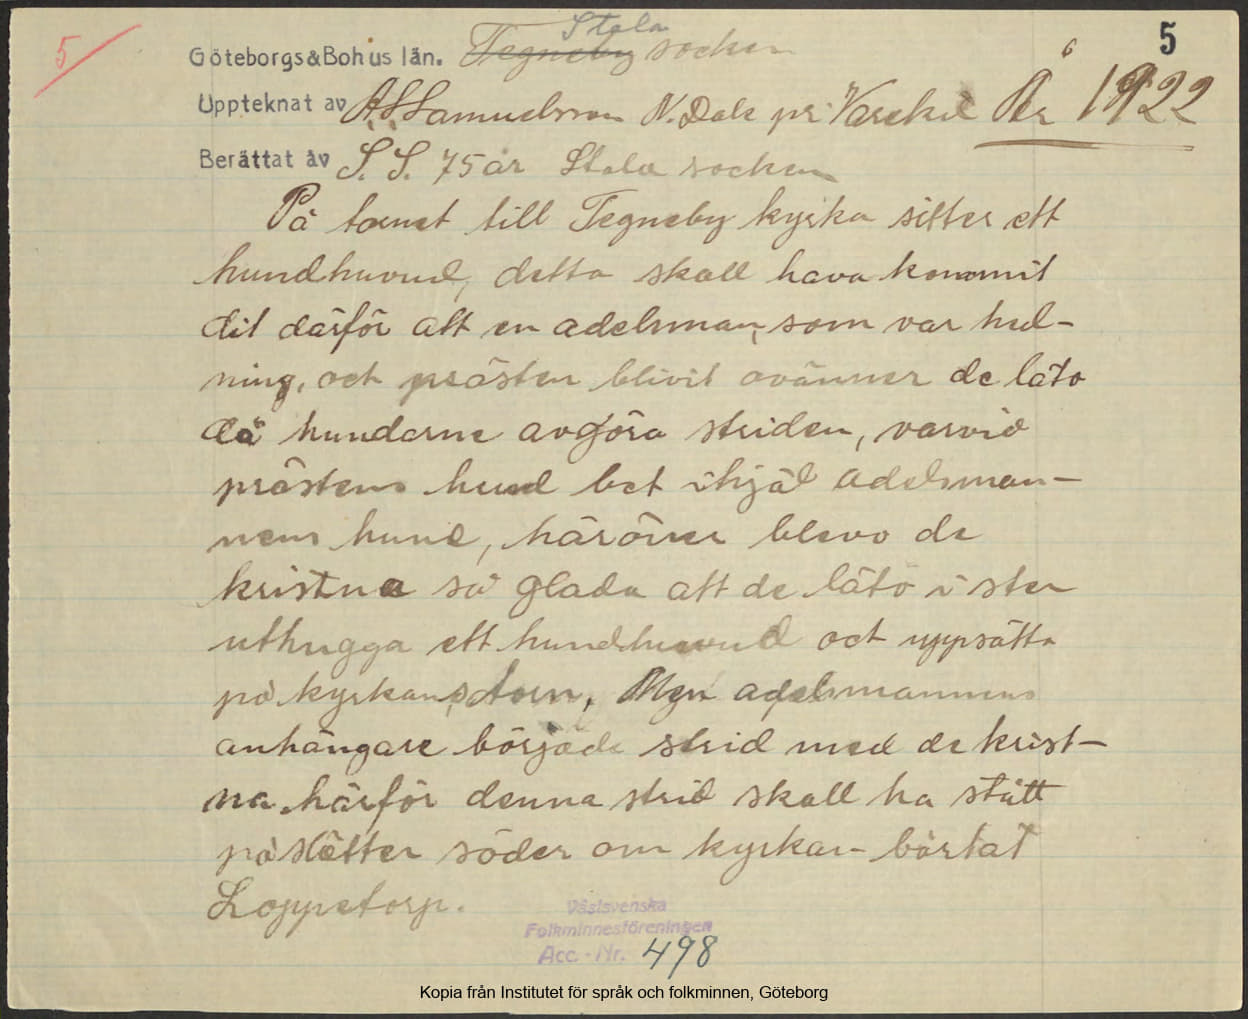 5
Stala
Göteborgs&Bohus län. Tegneby socken
5
Uppteknat av A.S. Samuelsson N. Dale pr. Varekil År 1922
Berättat av S. S. 75 år Stala socken
På tornet till Tegneby kyrka sitter ett
hundhuvud, detta skall hava kommit
dit därför att en adelsman, som var hed-
ning, och prästen blivit ovänner de läto
då hundarne avgöra striden, varvid
prästens hund bet ihjäl adelsman-
nens hund, häröver blevo de
kristna så glada att de läto i sten
uthugga ett hundhuvud och uppsätta
på kyrkans torn, Men adelsmannens
anhängare började strid med de krist-
na härför denna strid skall ha stått
på slätten söder om kyrkan bortåt
Loppetorp.
Västsvenska
Folkminnesföreningen
Acc.-Nr. 498
Kopia från Institutet för språk och folkminnen, Göteborg